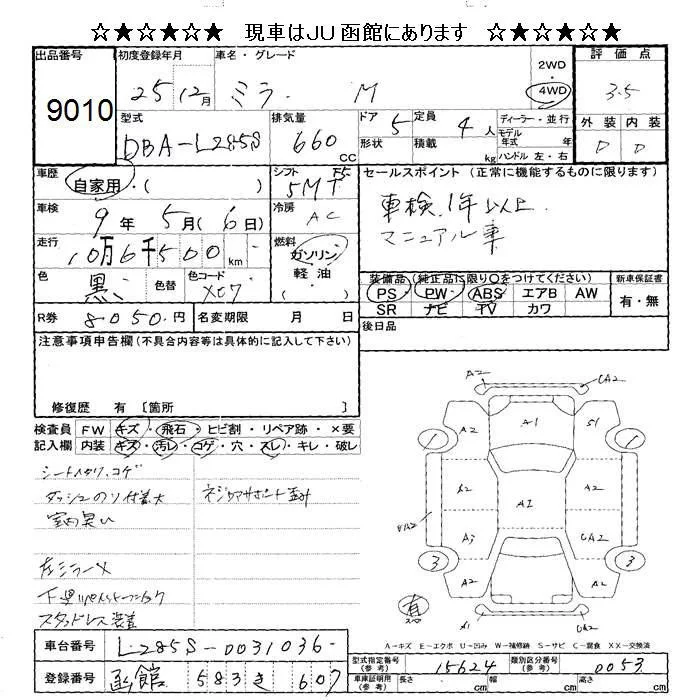 ☆★☆★☆★☆ 現車はJU函館にあります ☆★☆★☆★☆
出品番号 9010
初度登録年月 25年 12月
車名・グレード ミラ M
2WD 4WD
評価点 3.5
型式 DBA-L285S
排気量 660 cc
ドア 5 形状
定員 4人 積載 kg
ディーラー・並行
モデル年式 年
ハンドル 左・右
外装 D 内装 D
車歴 自家用・( )
シフト F5 5MT
セールスポイント (正常に機能するものに限ります)
車検 9年 5月 (6日)
冷房 AC
車検1年以上.
マニュアル車
走行 10万6千500 km
燃料 ガソリン 軽油 ( )
色 黒 色替 色コード X07
装備品 (純正品に限り○をつけてください)
PS PW ABS エアB AW
SR ナビ TV カワ
新車保証書 有・無
R券 8050円 名変期限 月 日
後日品
注意事項申告欄(不具合内容等は具体的に記入して下さい)
修復歴 有 [箇所 ]
検査員 FW キズ・飛石・ヒビ割・リペア跡・×要
記入欄 内装 キズ・汚レ・コゲ・穴・スレ・キレ・破レ
シートスタリ、コゲ
ダッシュのり付着大
室内臭い
左ミラーX
スタッドレス装着
A2 CA2
A2 A1 S1
1 1
A2 A1 A2
AA2
A3 CA2
3 3
A2 A2
有
A1 CA2
A-キズ E-エクボ U-凹み W-補修跡 S-サビ C-腐食 XX-交換済
車台番号 L285S-0031036
登録番号 函館 583 き 607
型式指定番号(参考) 15624 類別区分番号(参考) 0053
車庫証明用(参考) 長さ cm 幅 cm 高さ cm